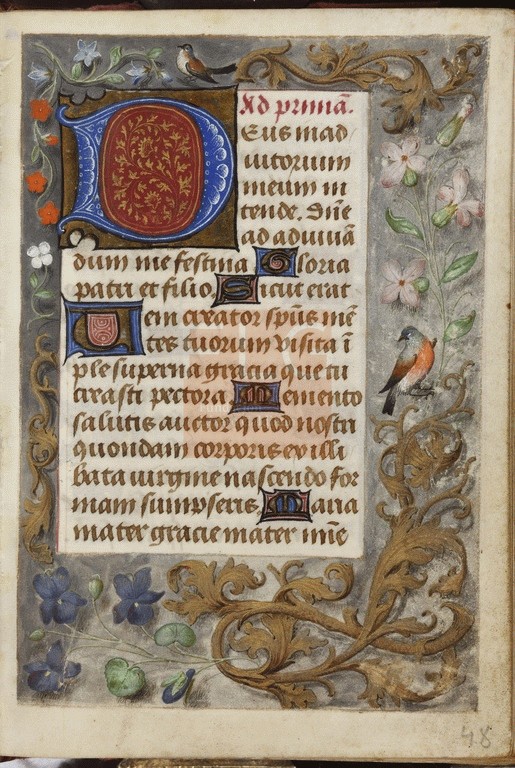 Ad primā.
Deus in ad
iutorium
meum in
tende. Dn̄e
ad adiuuā
dum me festina Gloria
patri et filio Sicut erat
Veni creator sp̄us mē
tes tuorum visita ī
ple superna gracia que tu
creasti pectora Memento
salutis auctor quod nostri
quondam corporis ex illi
bata uirgine nascendo for
mam sumpseris Maria
mater gracie mater mīe
48